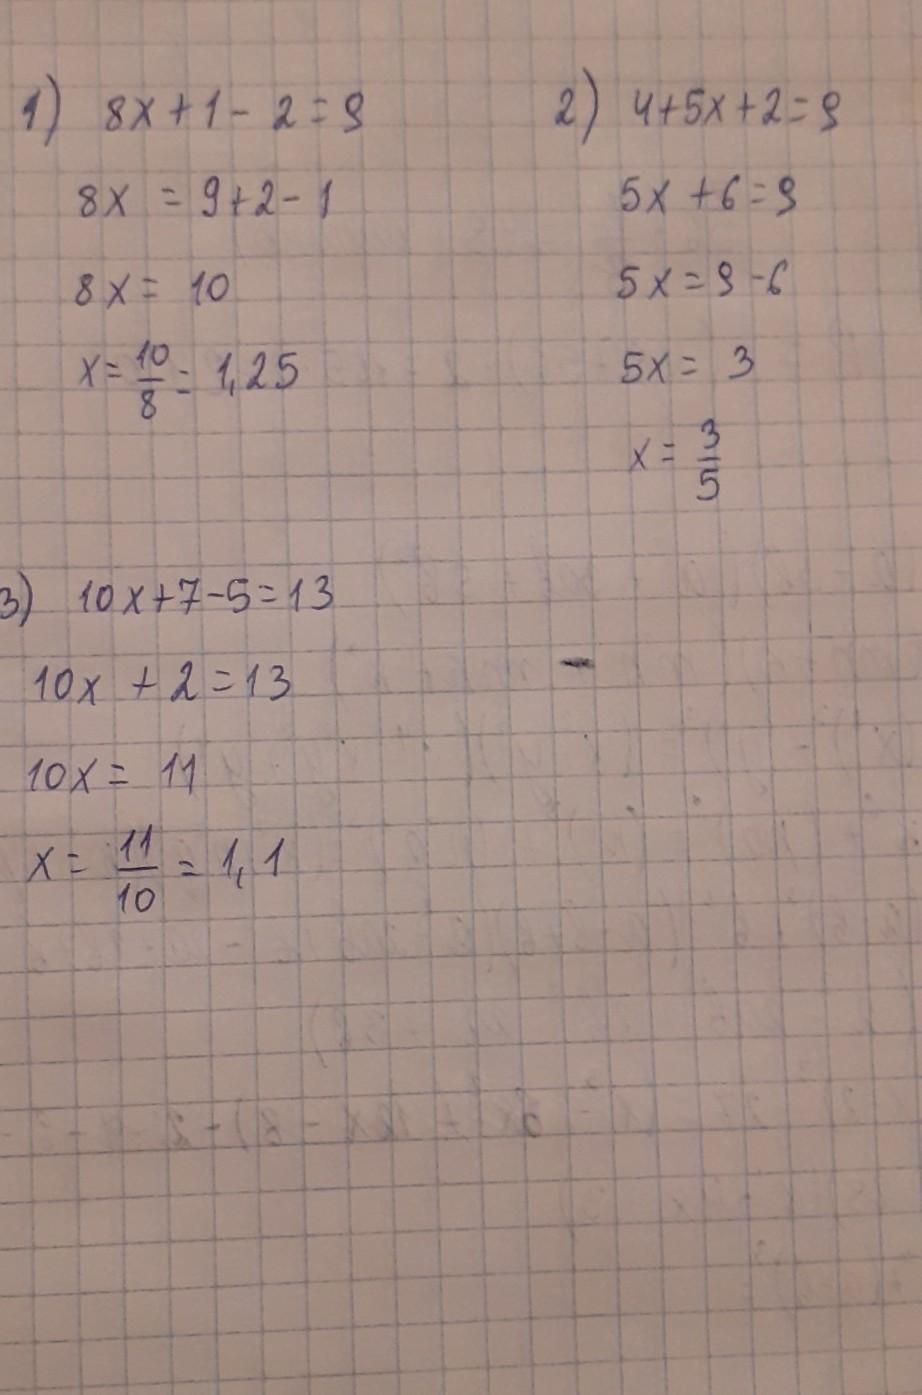 1) 8x + 1 - 2 = 9
8x = 9 + 2 - 1
8x = 10
x = 10/8 = 1,25
2) 4 + 5x + 2 = 9
5x + 6 = 9
5x = 9 - 6
5x = 3
x = 3/5
3) 10x + 7 - 5 = 13
10x + 2 = 13
10x = 11
x = 11/10 = 1,1